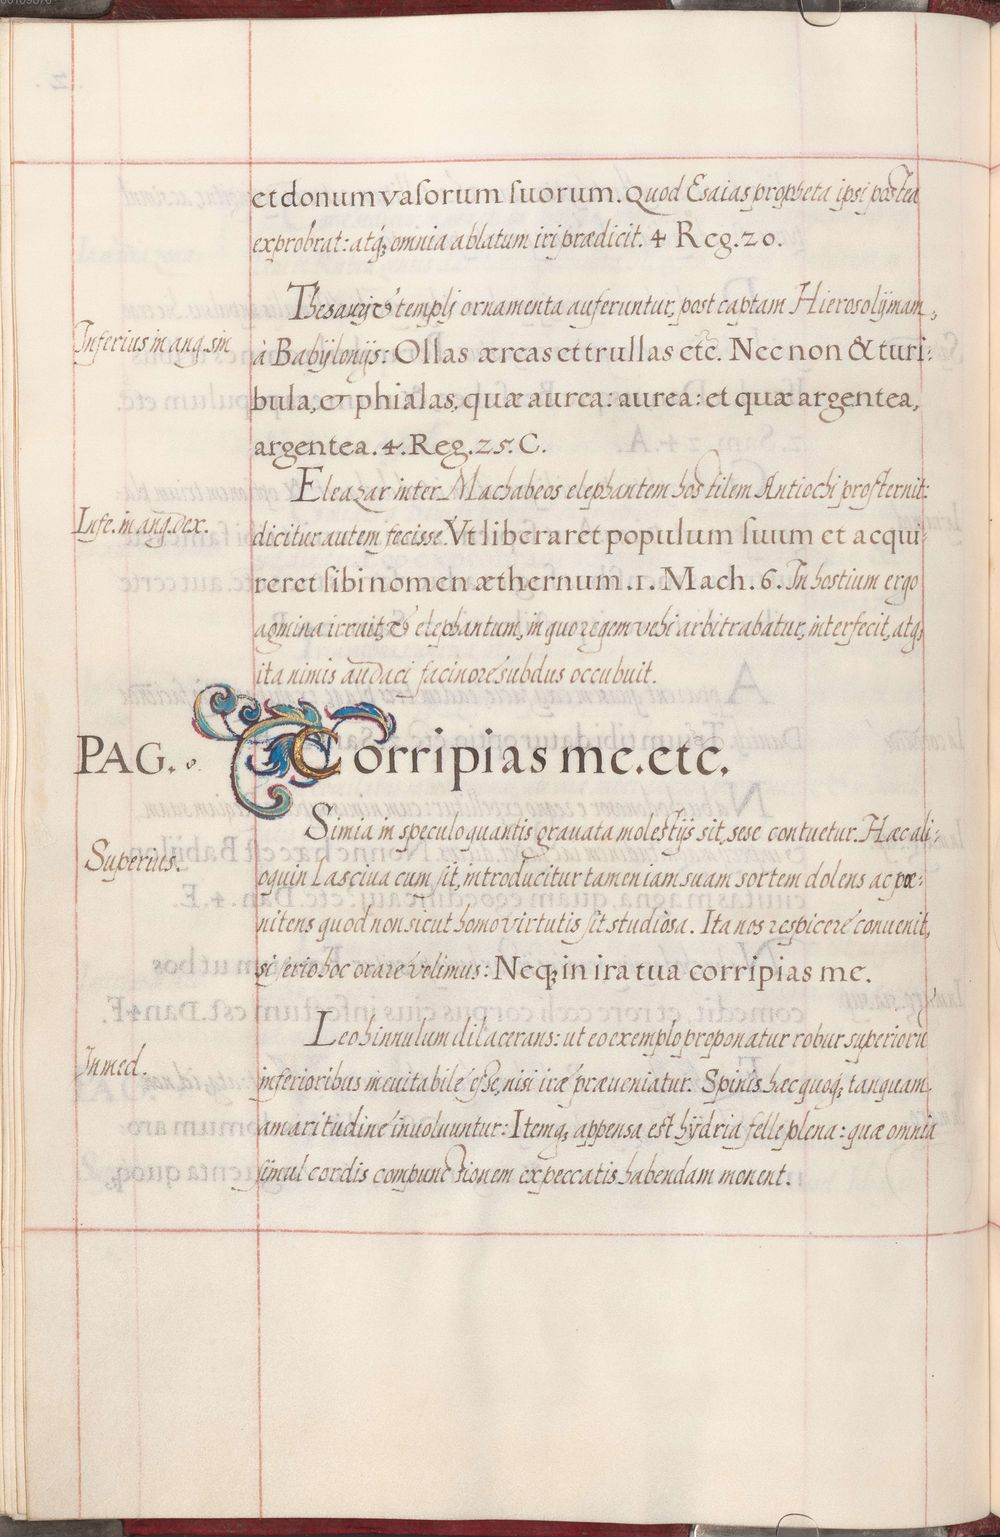 et donum vasorum suorum. Quod Esaias propheta ipsi postea
exprobrat: atq; omnia ablatum iri prædicit. 4 Reg. 20.
Inferius in ang. sin
Thesauri et templi ornamenta auferuntur, post captam Hierosolijmam,
à Babijlonijs: Ollas æreas et trullas etc. Nec non & turi-
bula, & phialas, quæ aurea: aurea: et quæ argentea,
argentea. 4. Reg. 25. C.
Infe. in ang. dex.
Eleazar inter Machabeos elephantem hostilem Antiochi prosternit:
dicitur autem fecisse Vt liberaret populum suum et acqui-
reret sibi nomen æthernum. 1. Mach. 6. In hostium ergo
agmina irruit, & elephantum, in quo regem vehi arbitrabatur, interfecit, atq;
ita nimis audaci facinore subdus occubuit.
PAG. Corripias me. etc.
Superius.
Simia in speculo quantis grauata molestijs sit, sese contuetur. Hæc ali-
oquin Lasciua cum sit, introducitur tamen iam suam sortem dolens ac pœ-
nitens quod non sicut homo virtutis sit studiosa. Ita nos respicere conuenit,
si serio hoc orare velimus: Neq; in ira tua corripias me.
In med.
Leo hinnulum dilacerans: ut eo exemplo proponatur robur superiorū
inferioribus ineuitabile esse, nisi iræ præueniatur. Spinis hæc quoq; tanquam
amaritudine inuoluuntur: Itemq; appensa est hÿdria felle plena: quæ omnia
simul cordis compunctionem ex peccatis habendam monent.